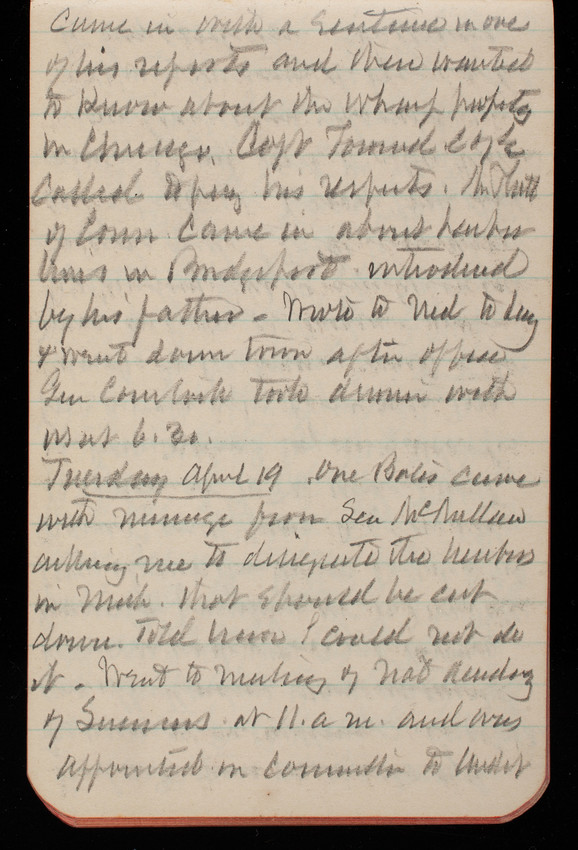 came in with a sentence more
of his reports and then wanted
to know about the wharf property
in Chicago. Capt Townsend
called to pay his respects. Mr
of Conn came in about harbor
lines in Bridgeport introduced
by his father - Wrote to Ned to day
& went down town after office
Gen Comstock took dinner with
us at 6.30.
Tuesday April 19. One Bates came
with message from Sen McMillan
asking me to designate the harbors
in Mich. that should be cut
down. Told him I could not do
it - Went to meeting of Nat Academy
of Sciences at 11. a.m. and was
appointed on committee to audit